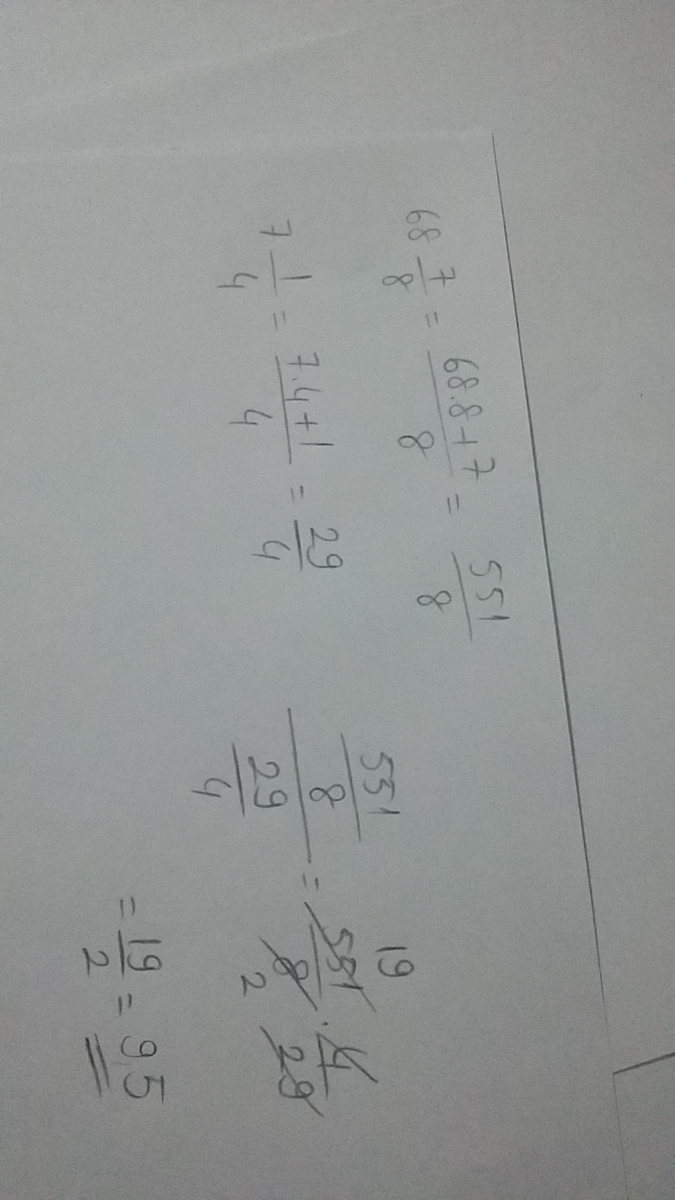 68 7/8 = (68.8+7)/8 = 551/8
7 1/4 = (7.4+1)/4 = 29/4
(551/8)/(29/4) = 551/8 · 4/29
19
2
= 19/2 = 9,5